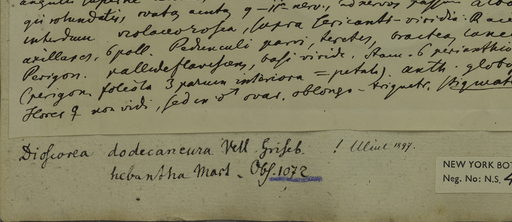 qui rotundatis, ovata acuta 9-11 nerv,
interdum violaceorosea, supra
axillares, 6 poll. Pedunculi parvi, teretes, bractea lance
Perigon. pallide flavescens, basi viride, stam. 6 perianthio
(perigon. foliola 3 parum interiora = petala) anth. globo
Flores ♀ non vidi, sed in ♂ ovar. oblongo-triquetr.
Dioscorea dodecaneura Vell Griseb. ! Uline 1897.
hebantha Mart. Obs. 1072
NEW YORK BOT
Neg. No: N.S. 4